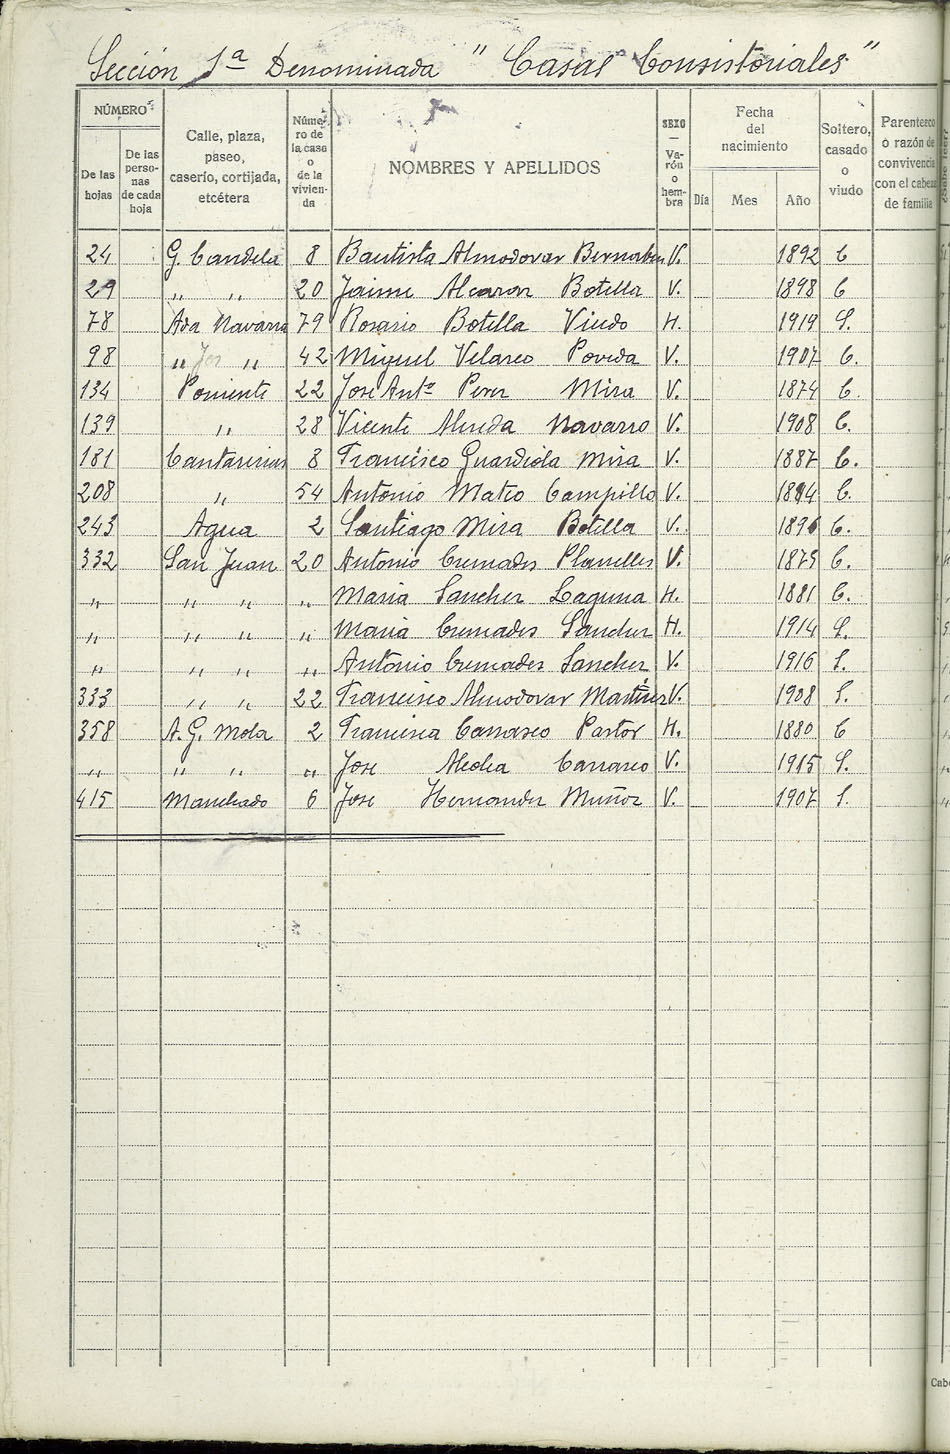 Sección 1ª Denominada "Casas Consistoriales"
NÚMERO
De las hojas
De las personas de cada hoja
Calle, plaza, paseo, caserío, cortijada, etcétera
Número de la casa o de la vivienda
NOMBRES Y APELLIDOS
SEXO — Varón o hembra
Fecha del nacimiento
Día Mes Año
Soltero, casado o viudo
Parentesco o razón de convivencia con el cabeza de familia
24 G. Candela 8 Bautista Almodovar Bernabeu V. 1892 C
29 " " 20 Jaime Alcaron Botella V. 1898 C
78 Ada Navarra 79 Rosario Botella Viudo H. 1919 S.
98 " " 42 Miguel Velasco Poveda V. 1907 C.
134 Poniente 22 Jose Antº Perez Mira V. 1874 C.
139 " 28 Vicente Navarro V. 1908 C.
181 Cantarerias 8 Francisco Guardiola Mira V. 1887 C.
208 " 54 Antonio Mateo Campillo V. 1894 C.
243 Agua 2 Santiago Mira Botella V. 1896 C.
332 San Juan 20 Antonio Cremades Planelles V. 1875 C.
" " " " Maria Sanchez Laguna H. 1881 C.
" " " " Maria Cremades Sanchez H. 1914 S.
" " " " Antonio Cremades Sanchez V. 1916 S.
333 " " 22 Francisco Almodovar Martinez V. 1908 S.
358 A. G. Mola 2 Francisca Carrasco Pastor H. 1880 C
" " " " Jose Carrasco V. 1915 S.
415 Manchado 6 Jose Hernandez Muñoz V. 1907 S.